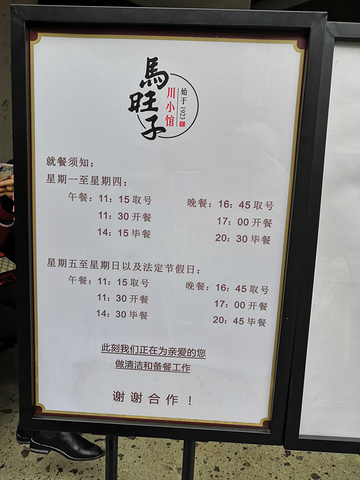 馬旺子
川小馆
始于1923
就餐须知：
星期一至星期四：
午餐：11：15取号 晚餐：16：45取号
11：30开餐 17：00开餐
14：15毕餐 20：30毕餐
星期五至星期日以及法定节假日：
午餐：11：15取号 晚餐：16：45取号
11：30开餐 17：00开餐
14：30毕餐 20：45毕餐
此刻我们正在为亲爱的您
做清洁和备餐工作
谢谢合作！